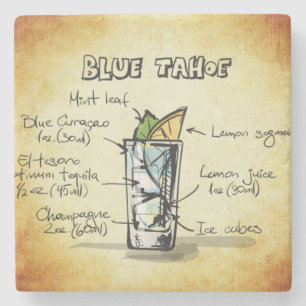 BLUE TAHOE
Mint leaf
Blue Curaçao
1oz. (30ml)
Lemon segmen
El tesoro
tinum tequila
1/2 oz. (45ml)
Lemon juice
1oz (30ml)
Champagne
2oz. (60ml)
Ice cubes